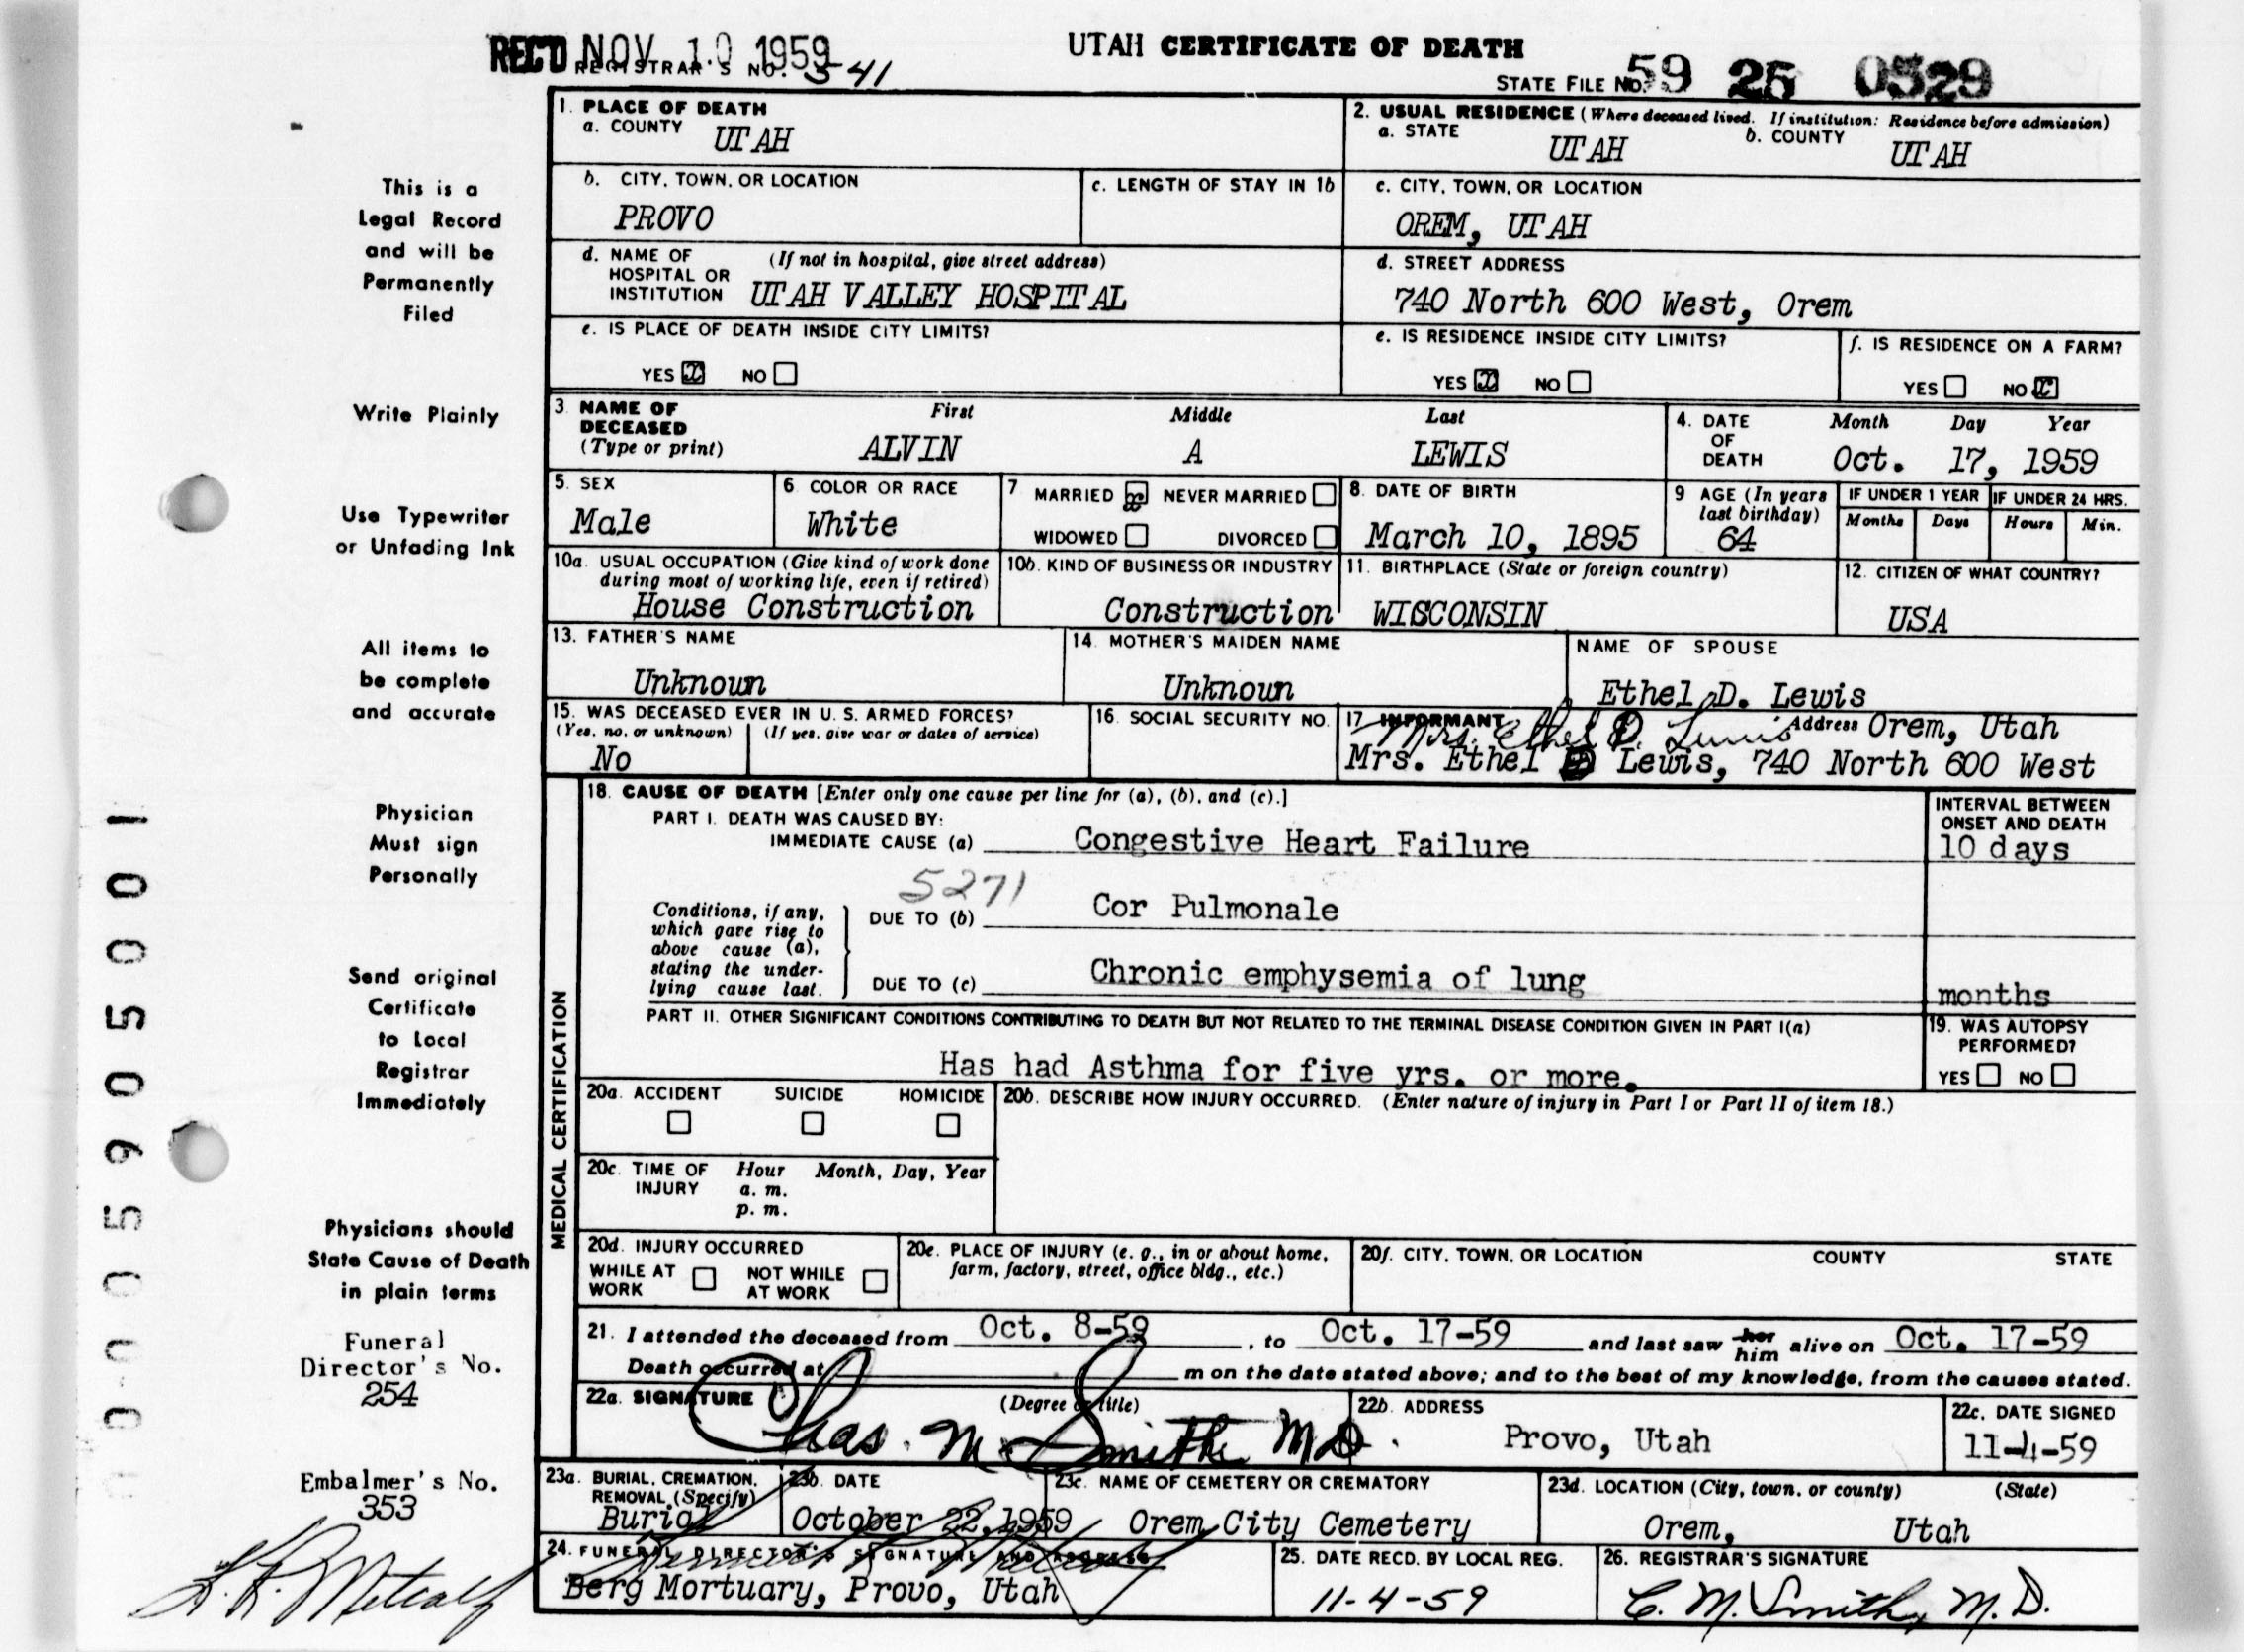 REC'D NOV 10 1959
REGISTRAR'S NO. 541
UTAH CERTIFICATE OF DEATH
STATE FILE NO. 59 25 0529
This is a
Legal Record
and will be
Permanently
Filed
Write Plainly
Use Typewriter
or Unfading Ink
All items to
be complete
and accurate
Physician
Must sign
Personally
Send original
Certificate
to Local
Registrar
Immediately
Physicians should
State Cause of Death
in plain terms
Funeral
Director's No.
254
Embalmer's No.
353
1. PLACE OF DEATH
a. COUNTY UTAH
2. USUAL RESIDENCE (Where deceased lived. If institution: Residence before admission)
a. STATE UTAH b. COUNTY UTAH
b. CITY, TOWN, OR LOCATION
PROVO
c. LENGTH OF STAY IN 1b
c. CITY, TOWN, OR LOCATION
OREM, UTAH
d. NAME OF (If not in hospital, give street address)
HOSPITAL OR
INSTITUTION UTAH VALLEY HOSPITAL
d. STREET ADDRESS
740 North 600 West, Orem
e. IS PLACE OF DEATH INSIDE CITY LIMITS?
YES x NO
e. IS RESIDENCE INSIDE CITY LIMITS?
YES x NO
f. IS RESIDENCE ON A FARM?
YES NO x
3. NAME OF First Middle Last
DECEASED
(Type or print) ALVIN A LEWIS
4. DATE Month Day Year
OF
DEATH Oct. 17, 1959
5. SEX
Male
6. COLOR OR RACE
White
7 MARRIED x NEVER MARRIED
WIDOWED DIVORCED
8. DATE OF BIRTH
March 10, 1895
9 AGE (In years
last birthday)
64
IF UNDER 1 YEAR IF UNDER 24 HRS.
Months Days Hours Min.
10a. USUAL OCCUPATION (Give kind of work done
during most of working life, even if retired)
House Construction
10b. KIND OF BUSINESS OR INDUSTRY
Construction
11. BIRTHPLACE (State or foreign country)
WISCONSIN
12. CITIZEN OF WHAT COUNTRY?
USA
13. FATHER'S NAME
Unknown
14. MOTHER'S MAIDEN NAME
Unknown
NAME OF SPOUSE
Ethel D. Lewis
15. WAS DECEASED EVER IN U. S. ARMED FORCES?
(Yes, no, or unknown) (If yes, give war or dates of service)
No
16. SOCIAL SECURITY NO.
17 INFORMANT Mrs. Ethel D. Lewis Address Orem, Utah
Mrs. Ethel D Lewis, 740 North 600 West
MEDICAL CERTIFICATION
18. CAUSE OF DEATH [Enter only one cause per line for (a), (b), and (c).]
PART I. DEATH WAS CAUSED BY:
IMMEDIATE CAUSE (a) Congestive Heart Failure
INTERVAL BETWEEN
ONSET AND DEATH
10 days
5271
Conditions, if any,
which gave rise to
above cause (a),
stating the under-
lying cause last.
DUE TO (b) Cor Pulmonale
DUE TO (c) Chronic emphysemia of lung
months
PART II. OTHER SIGNIFICANT CONDITIONS CONTRIBUTING TO DEATH BUT NOT RELATED TO THE TERMINAL DISEASE CONDITION GIVEN IN PART I(a)
Has had Asthma for five yrs. or more.
19. WAS AUTOPSY
PERFORMED?
YES NO
20a. ACCIDENT SUICIDE HOMICIDE
20b. DESCRIBE HOW INJURY OCCURRED. (Enter nature of injury in Part I or Part II of item 18.)
20c. TIME OF Hour Month, Day, Year
INJURY a. m.
p. m.
20d. INJURY OCCURRED
WHILE AT NOT WHILE
WORK AT WORK
20e. PLACE OF INJURY (e. g., in or about home,
farm, factory, street, office bldg., etc.)
20f. CITY, TOWN, OR LOCATION COUNTY STATE
21. I attended the deceased from Oct. 8-59, to Oct. 17-59 and last saw her him alive on Oct. 17-59
Death occurred at m on the date stated above; and to the best of my knowledge, from the causes stated.
22a. SIGNATURE (Degree or title)
Chas. M Smith MD.
22b. ADDRESS
Provo, Utah
22c. DATE SIGNED
11-4-59
23a. BURIAL, CREMATION,
REMOVAL (Specify)
Burial
23b. DATE
October 22, 1959
23c. NAME OF CEMETERY OR CREMATORY
Orem City Cemetery
23d. LOCATION (City, town, or county) (State)
Orem, Utah
24. FUNERAL DIRECTOR'S SIGNATURE AND ADDRESS
Berg Mortuary, Provo, Utah
25. DATE RECD. BY LOCAL REG.
11-4-59
26. REGISTRAR'S SIGNATURE
C. M. Smith, M. D.
Metcalf